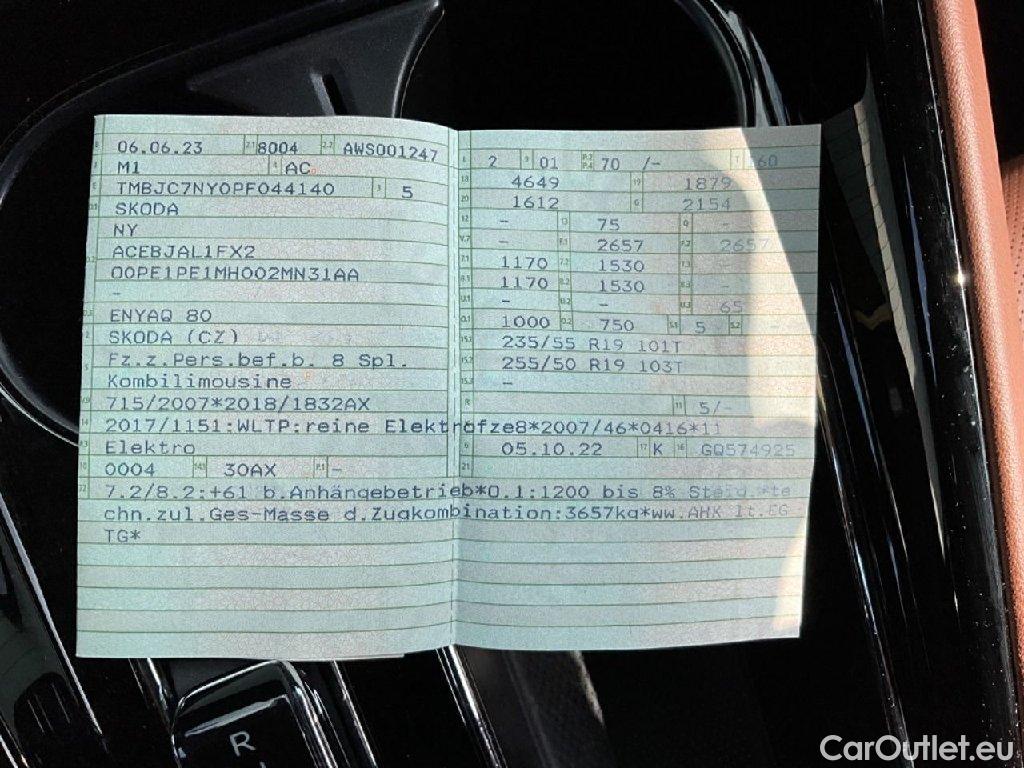 B 06.06.23 2.1 8004 2.2 AWS001247
J M1 4 AC
E TMBJC7NY0PF044140 3 5
D.1 SKODA
NY
D.2 ACEBJAL1FX2
00PE1PE1MH002MN31AA
-
D.3 ENYAQ 80
2 SKODA (CZ)
5 Fz.z.Pers.bef.b. 8 Spl.
Kombilimousine
V.9 715/2007*2018/1832AX
14 2017/1151:WLTP:reine Elektrofz
P.3 Elektro
10 0004 14.1 30AX P.1 -
L 2 9 01 P.2 P.4 70 /- T 160
18 4649 19 1879
20 1612 G 2154
12 - 13 75 Q -
V.7 - F.1 2657 F.2 2657
7.1 1170 7.2 1530 7.3 -
8.1 1170 8.2 1530 8.3 -
U.1 - U.2 - U.3 65
O.1 1000 O.2 750 S.1 5 S.2 -
15.1 235/55 R19 101T
15.2 255/50 R19 103T
15.3 -
R 11 5/-
e8*2007/46*0416*11
6 05.10.22 17 K 16 GQ574925
21
22 7.2/8.2:+61 b.Anhängebetrieb*O.1:1200 bis 8% Steig.*te
chn.zul.Ges-Masse d.Zugkombination:3657kg*ww.AHK lt.EG
TG*
R
CarOutlet.eu